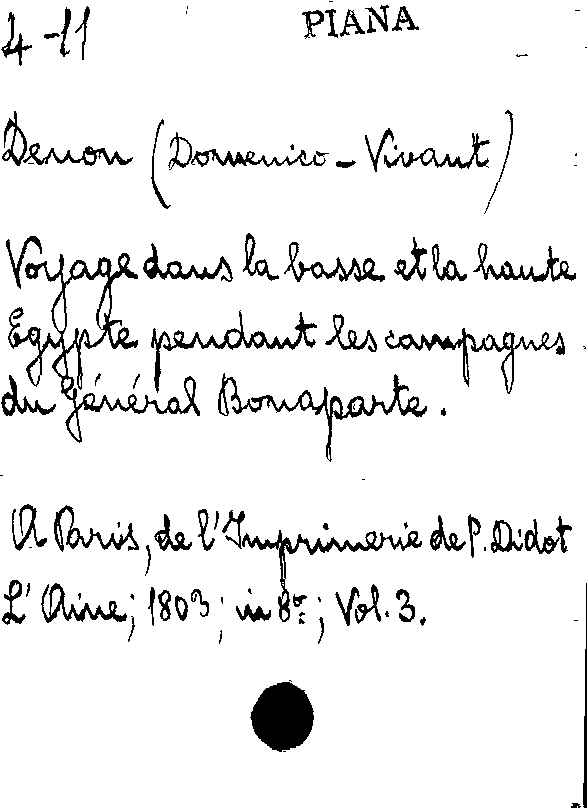 4-11 PIANA
Denon (Domenico-Vivant)
Voyage dans la basse et la haute
Egypte pendant les campagnes
du Général Bonaparte.
A Paris, de l'Imprimerie de P. Didot
L'Aine; 1803; in 8º; Vol. 3.